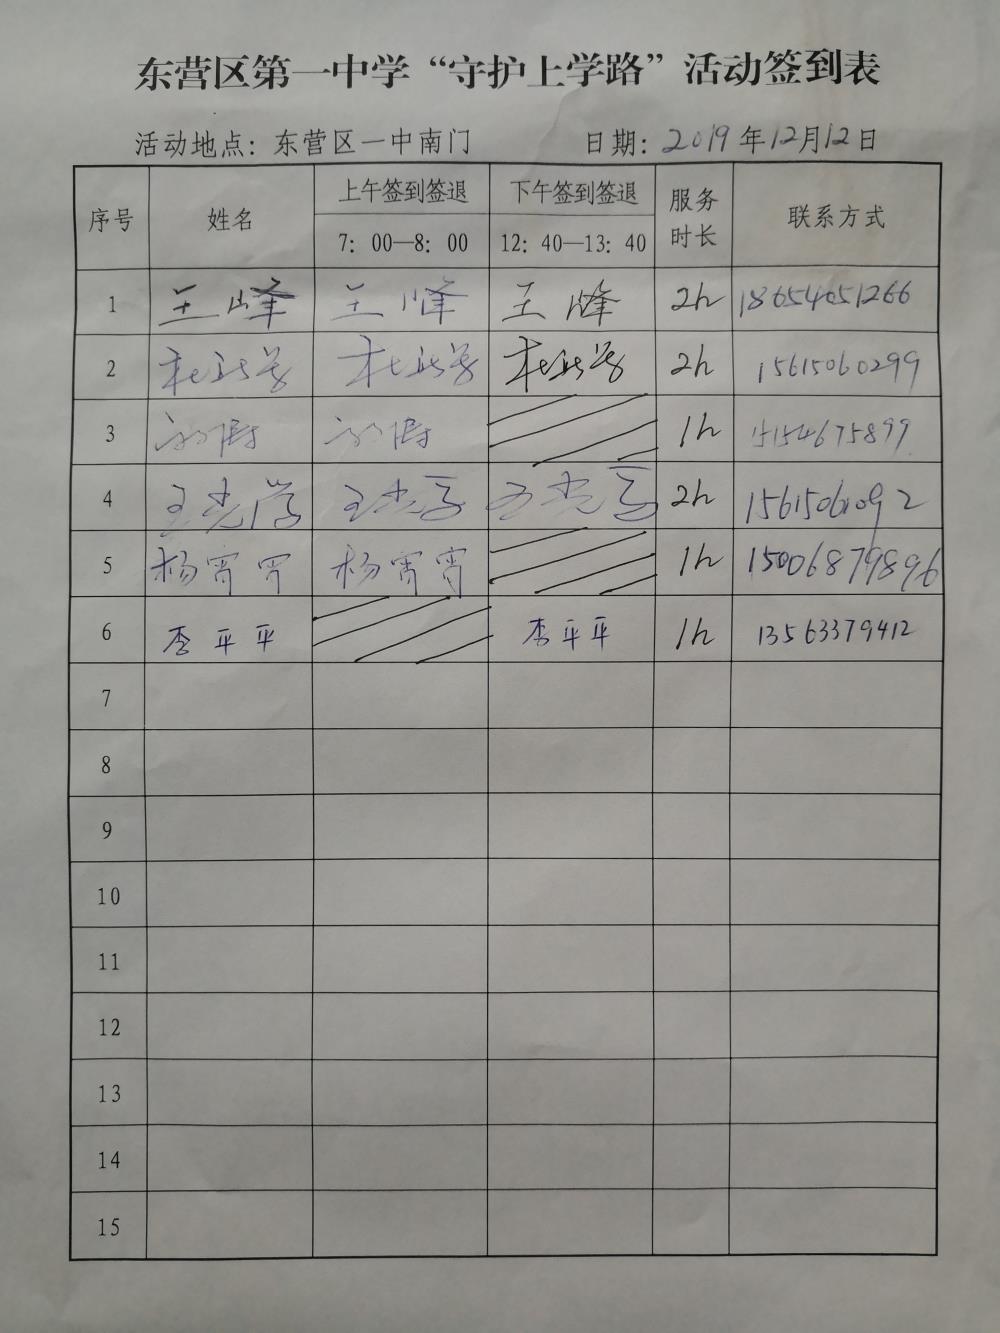 东营区第一中学“守护上学路”活动签到表
活动地点：东营区一中南门 日期：2019年12月12日
序号 姓名 上午签到签退 下午签到签退 服务时长 联系方式
7：00—8：00 12：40—13：40
1 王峰 王峰 王峰 2h 18654051266
2 2h 15615060299
3 1h 15154675899
4 2h 15615061092
5 杨霄霄 杨霄霄 1h 15006879896
6 李平平 李平平 1h 13563379412
7
8
9
10
11
12
13
14
15